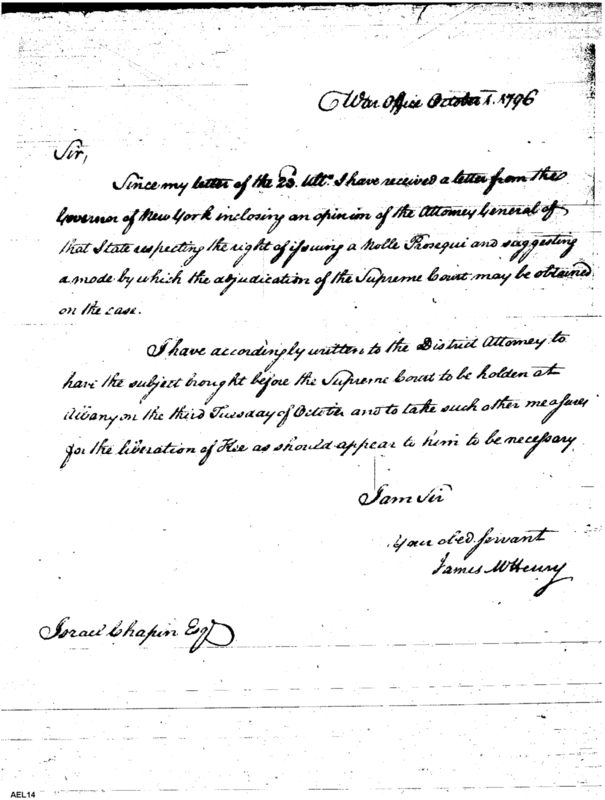 War Office October 1. 1796
Sir,
Since my letter of the 23. Ulto. I have received a letter from the
Governor of New York inclosing an opinion of the Attorney General of
that State respecting the right of issuing a Nolle Prosequi and suggesting
a mode by which the adjudication of the Supreme Court may be obtained
on the case.
I have accordingly written to the District Attorney to
have the subject brought before the Supreme Court to be holden at
Albany on the third Tuesday of October and to take such other measures
for the liberation of as should appear to him to be necessary
I am Sir
Your obed. Servant
James McHenry
Israel Chapin Esq
AEL14